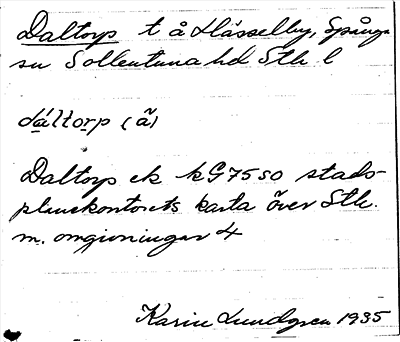 Daltorp t å Hässelby, Spånga
sn Sollentuna hd Sthl l
dáltorp (ã)
Daltorp ek kG75SO stads-
planekontorets karta över Sthl.
m. omgivningar 4
Karin Lundgren 1935